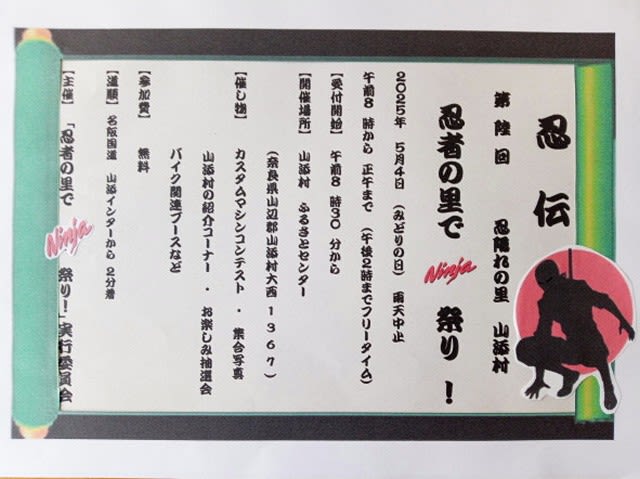 忍伝
第陸回 忍隠れの里 山添村
忍者の里で Ninja 祭り！
2025年 5月4日 （みどりの日） 雨天中止
午前8時から 正午まで （午後2時までフリータイム）
【受付開始】 午前8時30分から
【開催場所】 山添村 ふるさとセンター
（奈良県山辺郡山添村大西1367）
【催し物】 カスタムマシンコンテスト・集合写真
山添村の紹介コーナー・お楽しみ抽選会
バイク関連ブースなど
【参加費】 無料
【道順】 名阪国道 山添インターから 2分着
【主催】 「忍者の里で Ninja 祭り！」実行委員会